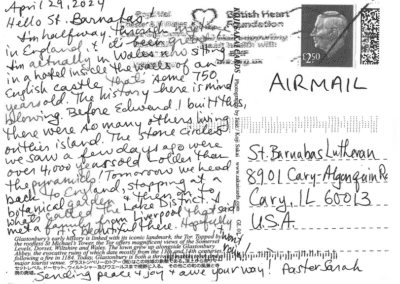 April 29, 2024
Hello St. Barnabas,
I'm halfway through my time
in England, & it's been great!
I'm actually in Wales now sitting
in a hotel inside the walls of an
English castle that's some 750
years old. The history here is mind
blowing. Before Edward I built this,
there were so many others living
on this island. The stone circles
we saw a few days ago were
over 4,000 years old & older than
the pyramids! Tomorrow we head
back to England, stopping at a
botanical garden & then on to
what's called the Lake District. I
met a family from Liverpool that said
it's beautiful there. Hopefully it
won't
rain!
Sending peace & joy & awe your way! Pastor Sarah
British Heart
Foundation
£2.50
AIRMAIL
St. Barnabas Lutheran
8901 Cary-Algonquin Rd
Cary, IL 60013
U.S.A.
Glastonbury's early history is linked with its iconic landmark, the Tor. Topped by
the roofless St Michael's Tower, the Tor offers magnificent views of the Somerset
Levels, Dorset, Wiltshire and Wales. The town grew up alongside Glastonbury
Abbey, the evocative ruins of which date mostly from the 13th and 14th centuries
following a fire in 1184. Today, Glastonbury is both a thriving community and a
major tourist venue.